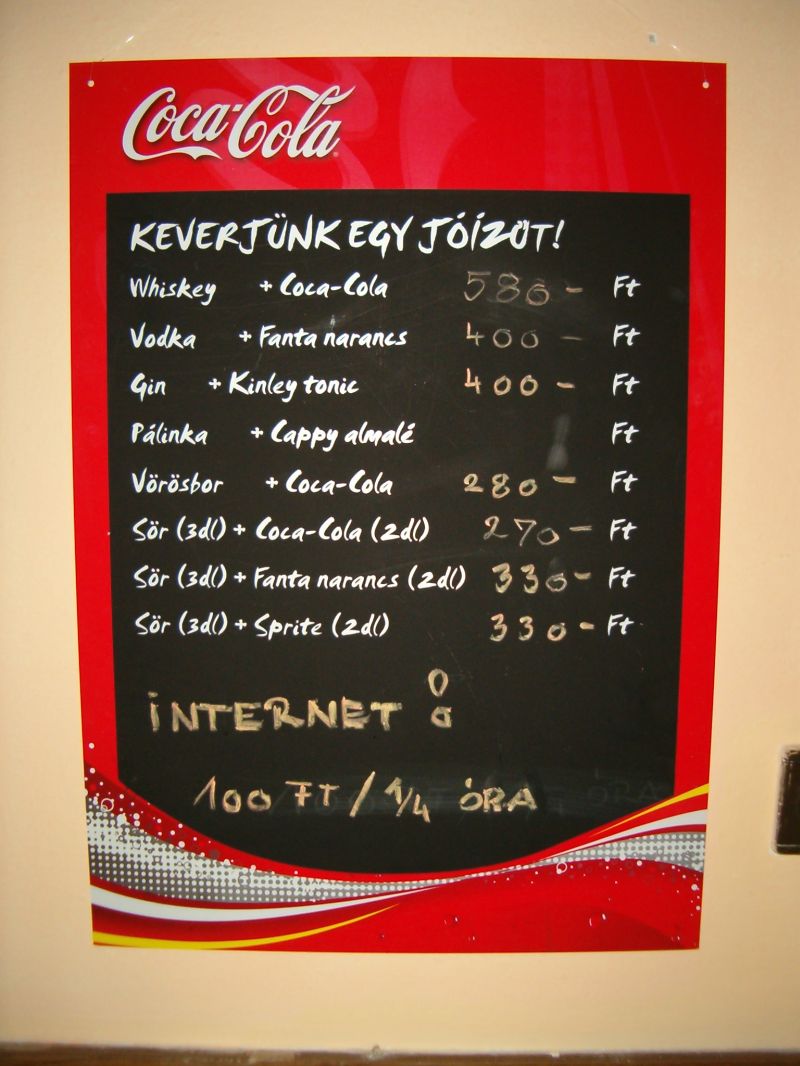 Coca-Cola
KEVERJÜNK EGY JÓÍZŰT!
Whiskey + Coca-Cola 580- Ft
Vodka + Fanta narancs 400- Ft
Gin + Kinley tonic 400- Ft
Pálinka + Cappy almalé Ft
Vörösbor + Coca-Cola 280- Ft
Sör (3dl) + Coca-Cola (2dl) 270- Ft
Sör (3dl) + Fanta narancs (2dl) 330- Ft
Sör (3dl) + Sprite (2dl) 330- Ft
INTERNET:
100 FT / 1/4 ÓRA